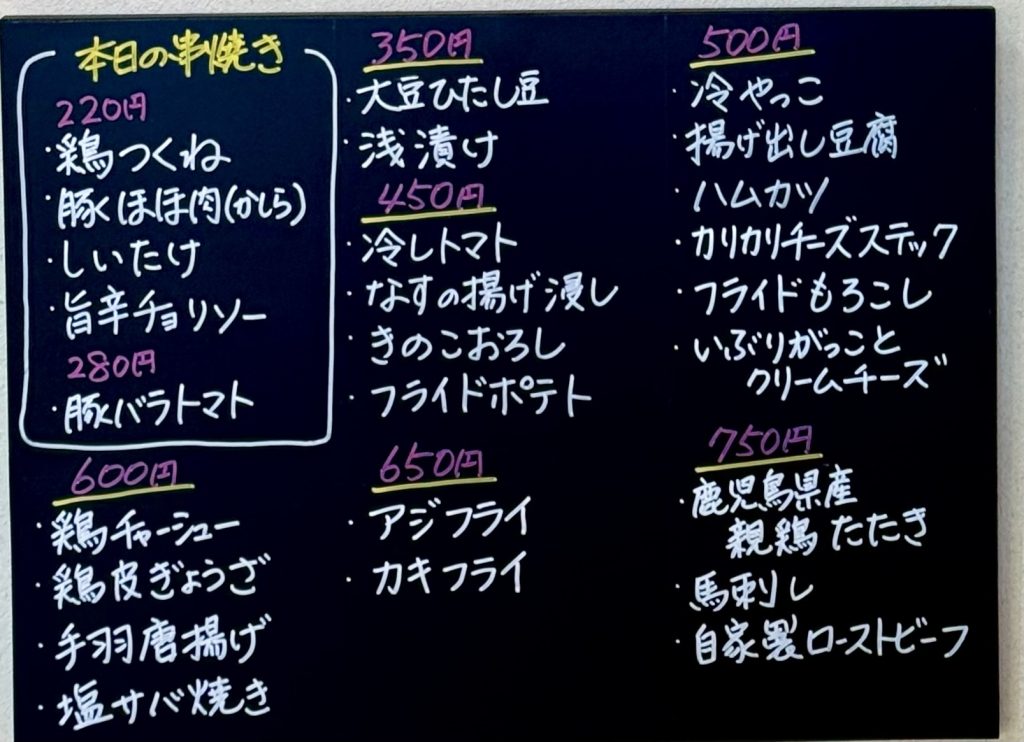 本日の串焼き
220円
・鶏つくね
・豚くほほ肉(かしら)
・しいたけ
・旨辛チョリソー
280円
・豚バラトマト
350円
・大豆ひたし豆
・浅漬け
450円
・冷しトマト
・なすの揚げ浸し
・きのこおろし
・フライドポテト
500円
・冷やっこ
・揚げ出し豆腐
・ハムカツ
・カリカリチーズステック
・フライドもろこし
・いぶりがっこと
クリームチーズ
600円
・鶏チャーシュー
・鶏皮ぎょうざ
・手羽唐揚げ
・塩サバ焼き
650円
・アジフライ
・カキフライ
750円
・鹿児島県産
親鶏たたき
・馬刺し
・自家製ローストビーフ